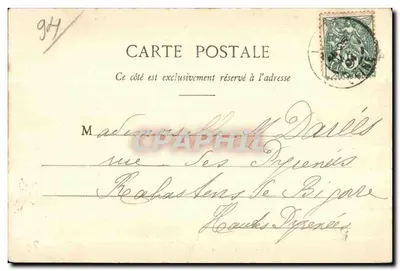 94
CARTE POSTALE
Ce côté est exclusivement réservé à l'adresse
Mademoiselle M Darées
rue des Pyrénées
Rabastens de Bigorre
Hautes Pyrénées
CPAPHIL